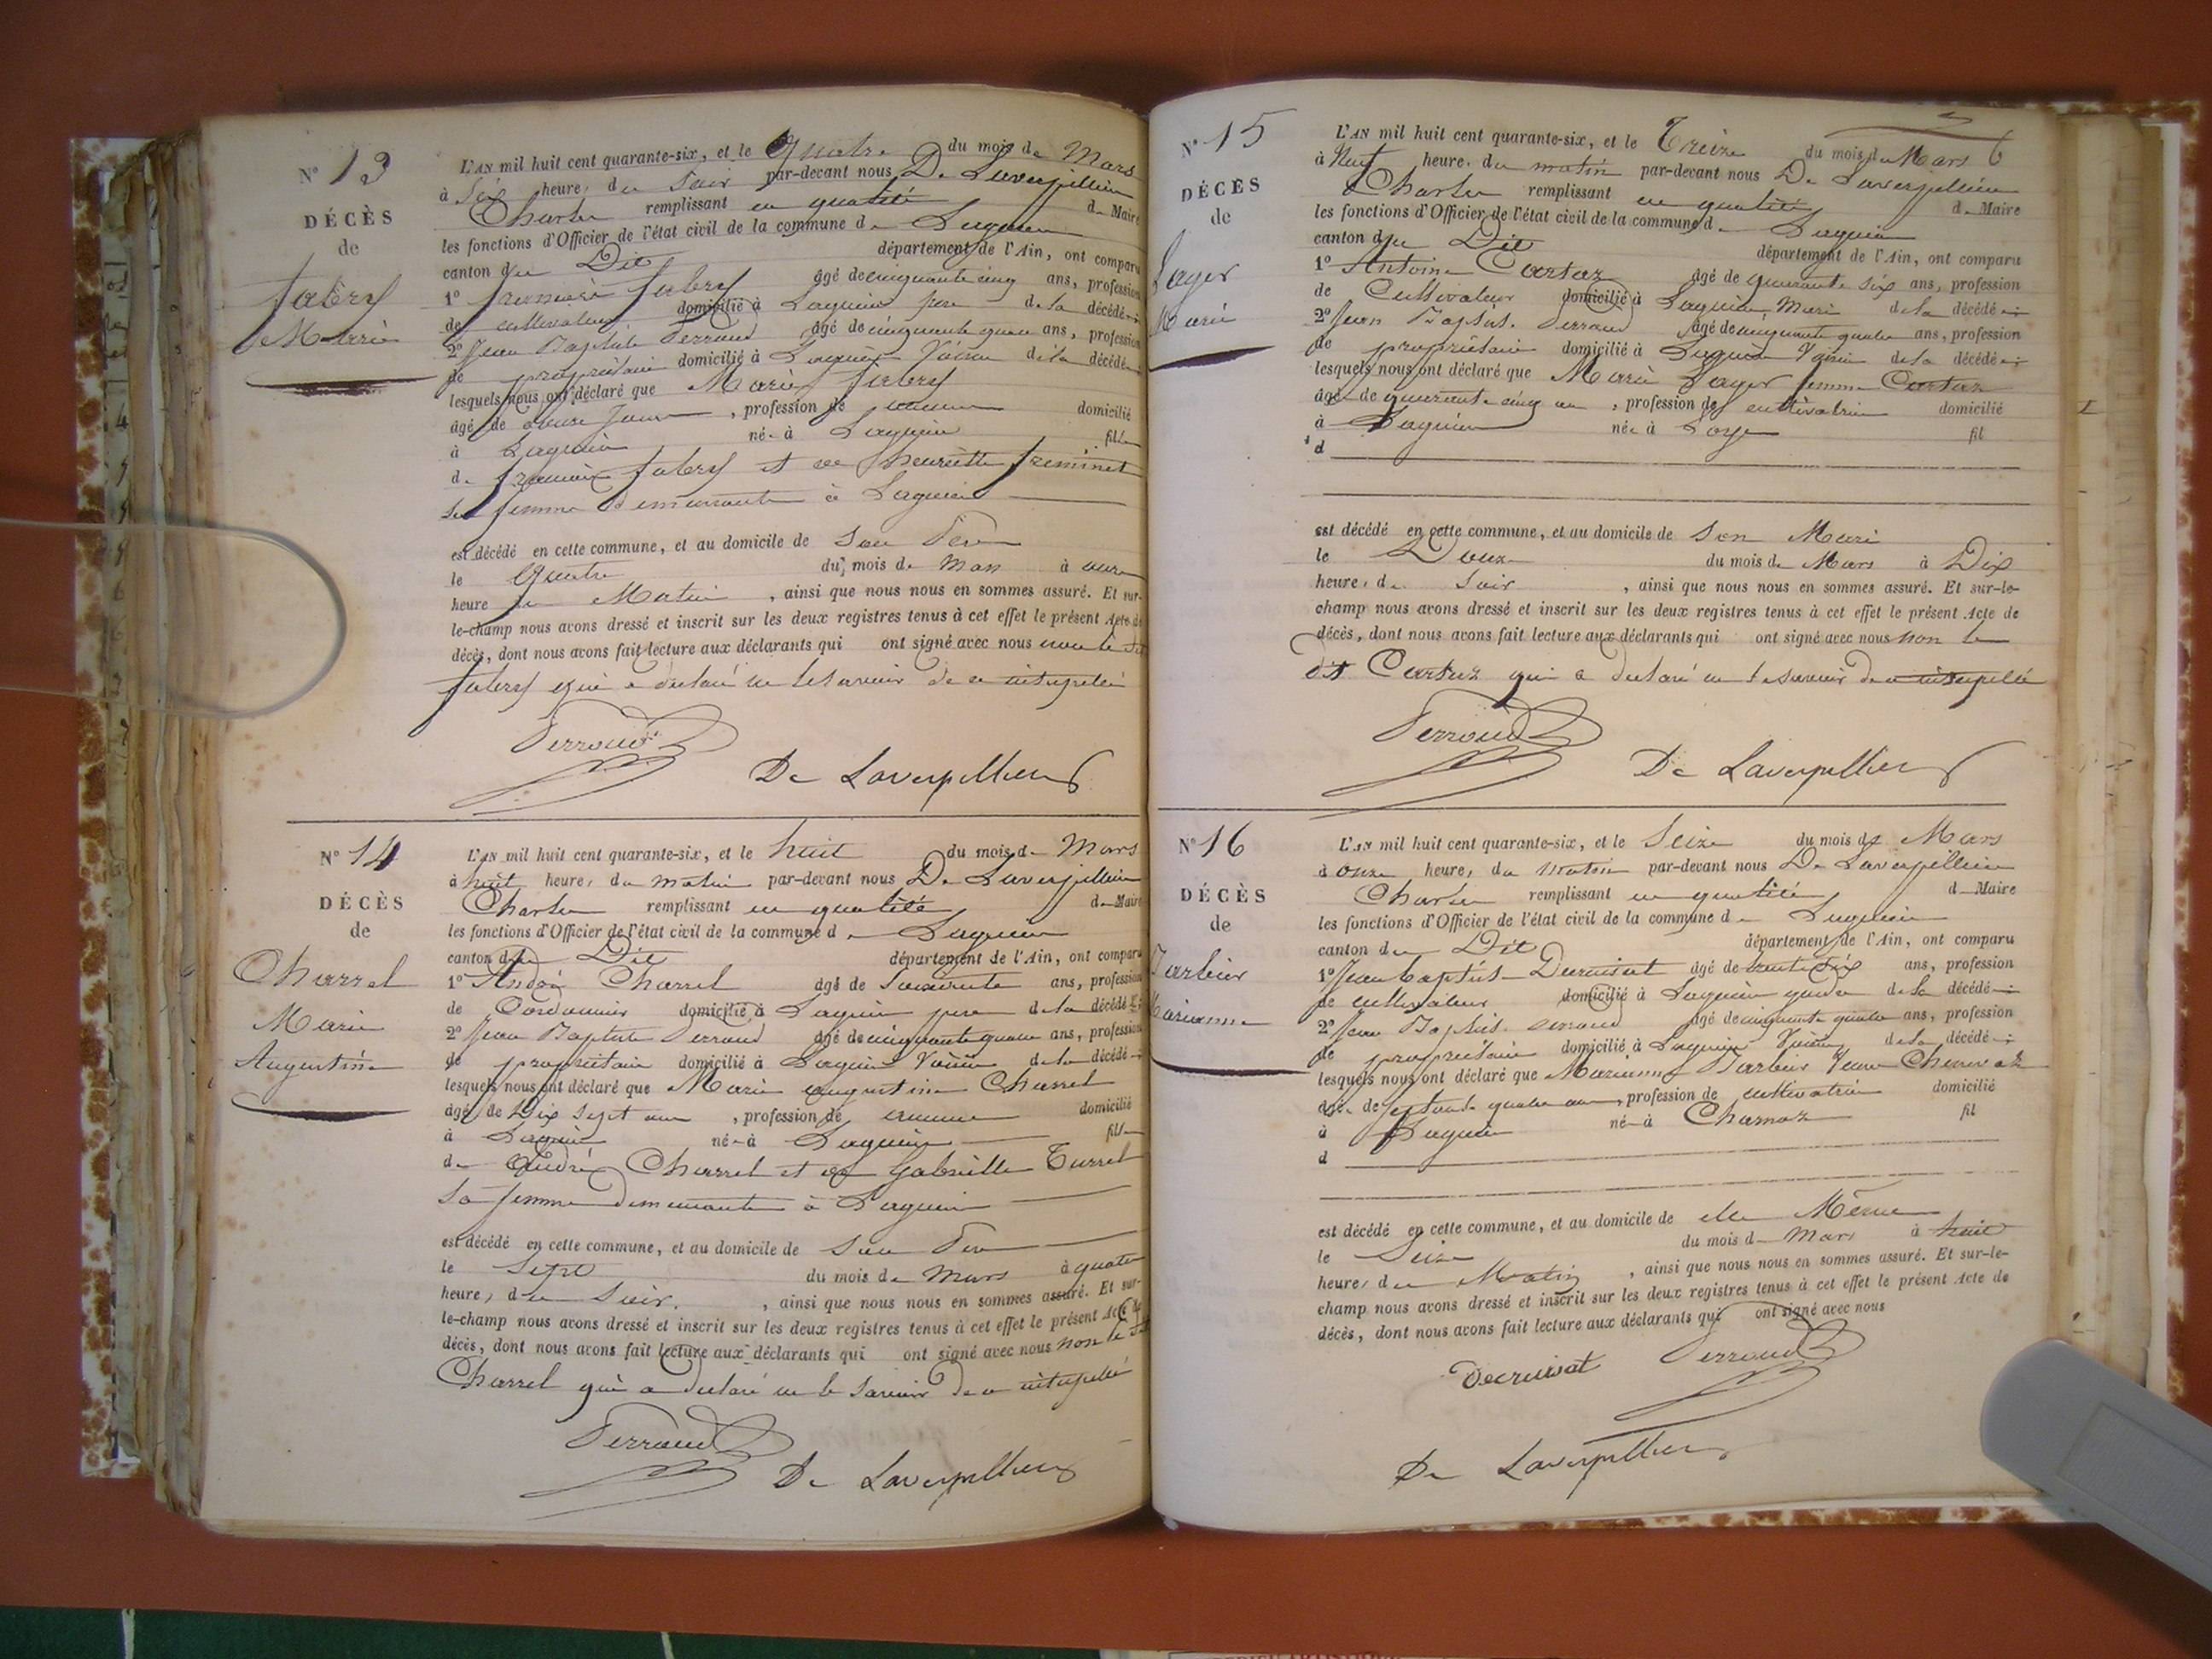 N° 13
DÉCÈS
de
fabry
Marie
L'AN mil huit cent quarante-six, et le Quatre du mois de Mars
à Six heure, du Soir par-devant nous De Laverpillière
Charles remplissant en qualité de Maire
les fonctions d'Officier de l'état civil de la commune de Lagnieu
canton du Dit département de l'Ain, ont comparu
1° françois fabry âgé de cinquante cinq ans, profession
de cultivateur domicilié à Lagnieu père de la décédée
2° Jean Baptiste Perroud âgé de cinquante quatre ans, profession
de propriétaire domicilié à Lagnieu Voisin de la décédée
lesquels nous ont déclaré que Marie fabry
âgé de jours, profession de aucune domicilié
à Lagnieu née à Lagnieu fille
de françois fabry et de henriette freminet
sa femme demeurante à Lagnieu
est décédé en cette commune, et au domicile de Son Père
le Quatre du mois de Mars à onze
heure du Matin, ainsi que nous nous en sommes assuré. Et sur-
le-champ nous avons dressé et inscrit sur les deux registres tenus à cet effet le présent Acte de
décès, dont nous avons fait lecture aux déclarants qui ont signé avec nous non le dit
fabry qui a déclaré ne le savoir de ce interpellé
Perroud
De Laverpillière
N° 14
DÉCÈS
de
Charrel
Marie
Augustine
L'AN mil huit cent quarante-six, et le huit du mois de Mars
à huit heure, du matin par-devant nous De Laverpillière
Charles remplissant en qualité de Maire
les fonctions d'Officier de l'état civil de la commune de Lagnieu
canton du Dit département de l'Ain, ont comparu
1° André Charrel âgé de Soixante ans, profession
de Cordonnier domicilié à Lagnieu père de la décédée
2° Jean Baptiste Perroud âgé de cinquante quatre ans, profession
de propriétaire domicilié à Lagnieu Voisin de la décédée
lesquels nous ont déclaré que Marie augustine Charrel
âgé de Dix Sept ans, profession de aucune domicilié
à Lagnieu née à Lagnieu fille
de André Charrel et de Gabrielle Turrel
Sa femme demeurante à Lagnieu
est décédé en cette commune, et au domicile de Son Père
le Sept du mois de Mars à quatre
heure, du Soir, ainsi que nous nous en sommes assuré. Et sur-
le-champ nous avons dressé et inscrit sur les deux registres tenus à cet effet le présent Acte de
décès, dont nous avons fait lecture aux déclarants qui ont signé avec nous non le dit
Charrel qui a déclaré ne le savoir de ce interpellé
Perroud
De Laverpillière
N° 15
DÉCÈS
de
Lager
Marie
L'AN mil huit cent quarante-six, et le Treize du mois de Mars
à Neuf heure, du matin par-devant nous De Laverpillière
Charles remplissant en qualité de Maire
les fonctions d'Officier de l'état civil de la commune de Lagnieu
canton du Dit département de l'Ain, ont comparu
1° Antoine Cartaz âgé de quarante Six ans, profession
de Cultivateur domicilié à Lagnieu Mari de la décédée
2° Jean Baptiste Perroud âgé de cinquante quatre ans, profession
de propriétaire domicilié à Lagnieu Voisin de la décédée
lesquels nous ont déclaré que Marie Lager femme Cartaz
âgé de quarante cinq ans, profession de cultivatrice domicilié
à Lagnieu née à Loye fil
d
est décédé en cette commune, et au domicile de Son Mari
le Douze du mois de Mars à Dix
heure, du Soir, ainsi que nous nous en sommes assuré. Et sur-le-
champ nous avons dressé et inscrit sur les deux registres tenus à cet effet le présent Acte de
décès, dont nous avons fait lecture aux déclarants qui ont signé avec nous non le
dit Cartaz qui a déclaré ne le savoir de ce interpellé
Perroud
De Laverpillière
N° 16
DÉCÈS
de
Barbier
Marianne
L'AN mil huit cent quarante-six, et le Seize du mois de Mars
à onze heure, du matin par-devant nous De Laverpillière
Charles remplissant en qualité de Maire
les fonctions d'Officier de l'état civil de la commune de Lagnieu
canton du Dit département de l'Ain, ont comparu
1° Jean baptiste Decruisat âgé de trente Six ans, profession
de cultivateur domicilié à Lagnieu gendre de la décédée
2° Jean Baptiste Perroud âgé de cinquante quatre ans, profession
de propriétaire domicilié à Lagnieu Voisin de la décédée
lesquels nous ont déclaré que Marianne Barbier Veuve
âgée de septante quatre ans, profession de cultivatrice domicilié
à Lagnieu née à Charnoz fil
d
est décédé en cette commune, et au domicile de elle Même
le Seize du mois de Mars à huit
heure, du Matin, ainsi que nous nous en sommes assuré. Et sur-le-
champ nous avons dressé et inscrit sur les deux registres tenus à cet effet le présent Acte de
décès, dont nous avons fait lecture aux déclarants qui ont signé avec nous
Decruisat Perroud
De Laverpillière